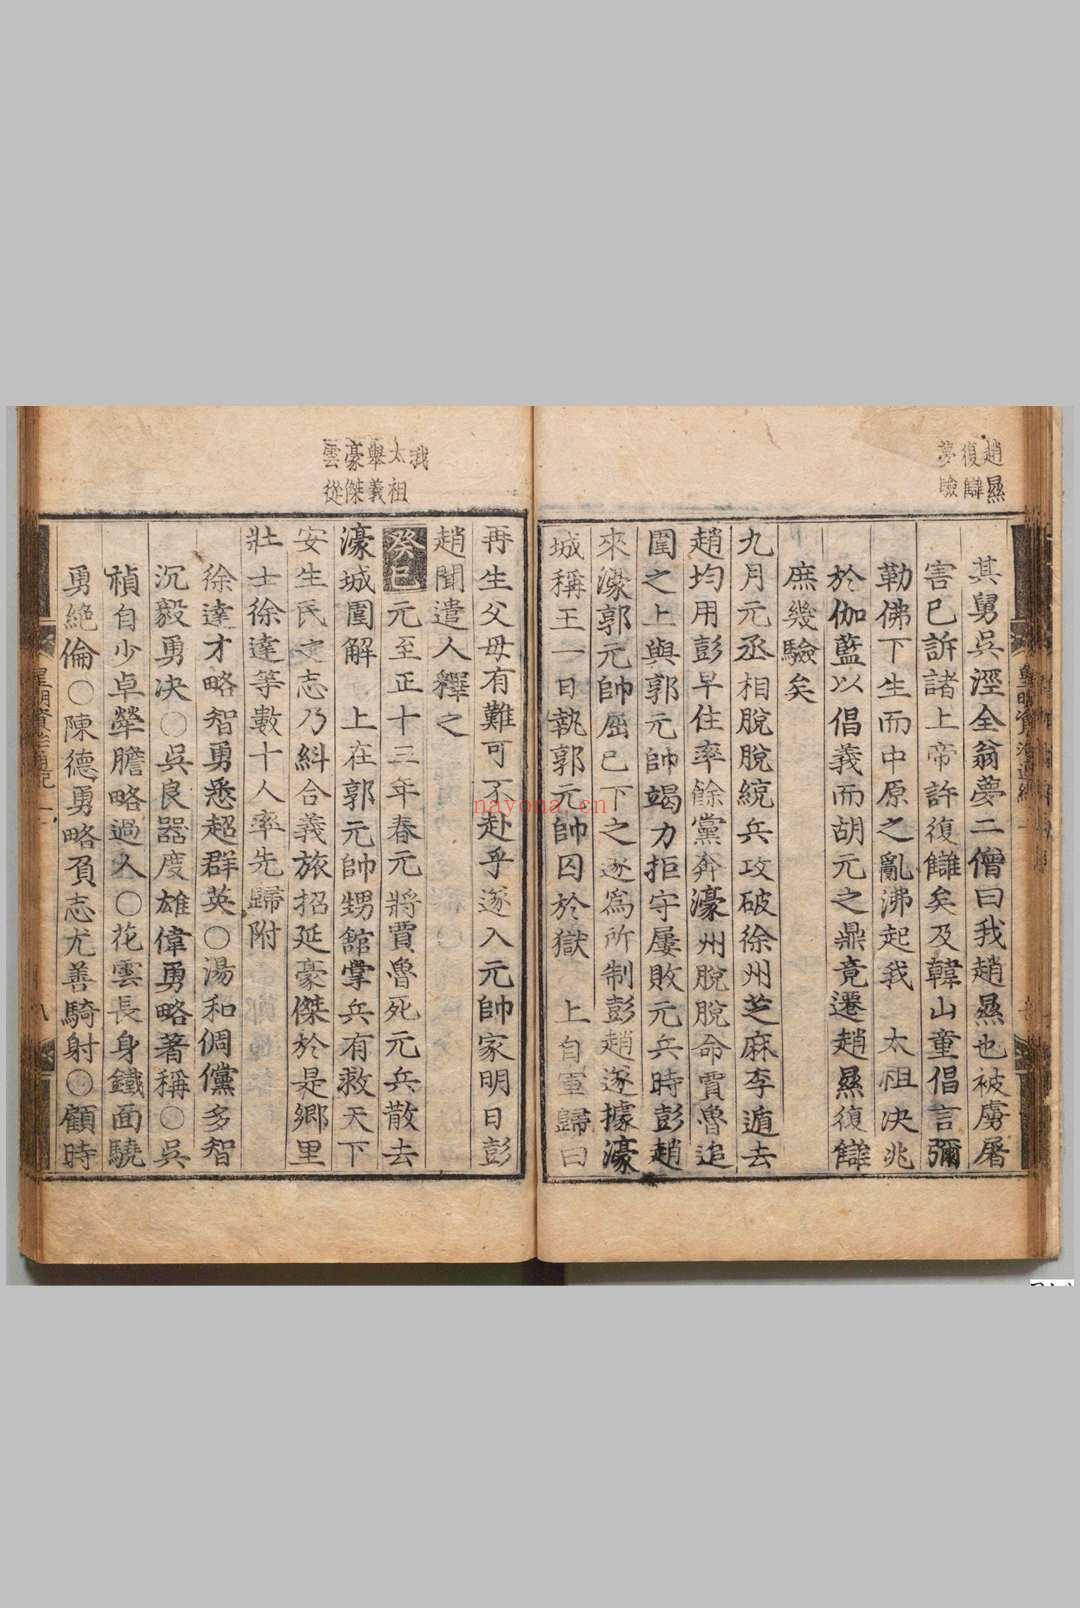 趙㬎
復讎
夢驗
其舅吳涇全翁夢二僧曰我趙㬎也被虜屠
害已訴諸上帝許復讎矣及韓山童倡言彌
勒佛下生而中原之亂沸起我　太祖決兆
於伽藍以倡義而胡元之鼎竟遷趙㬎復讎
庶幾驗矣
九月元丞相脫脫統兵攻破徐州芝麻李遁去
趙均用彭早住率餘黨奔濠州脫脫命賈魯追
圍之上與郭元帥竭力拒守屢敗元兵時彭趙
來濠郭元帥屈己下之遂為所制彭趙遂據濠
城稱王一日執郭元帥囚於獄　上自軍歸曰
我
太祖
舉義
豪傑
雲從
再生父母有難可不赴乎遂入元帥家明日彭
趙聞遣人釋之
癸巳元至正十三年春元將賈魯死元兵散去
濠城圍解　上在郭元帥甥舘掌兵有救天下
安生民之志乃糾合義旅招延豪傑於是鄉里
壯士徐達等數十人率先歸附
徐達才略智勇悉超群英○湯和倜儻多智
沉毅勇決○吳良器度雄偉勇略著稱○吳
禎自少卓犖膽略過人○花雲長身鐵面驍
勇絕倫○陳德勇略負志尤善騎射○顧時
皇明資治通紀
八
nayona.cn